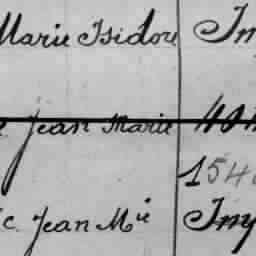 Marie Isidore Im
Jean Marie
154
c. Jean Mie Imp